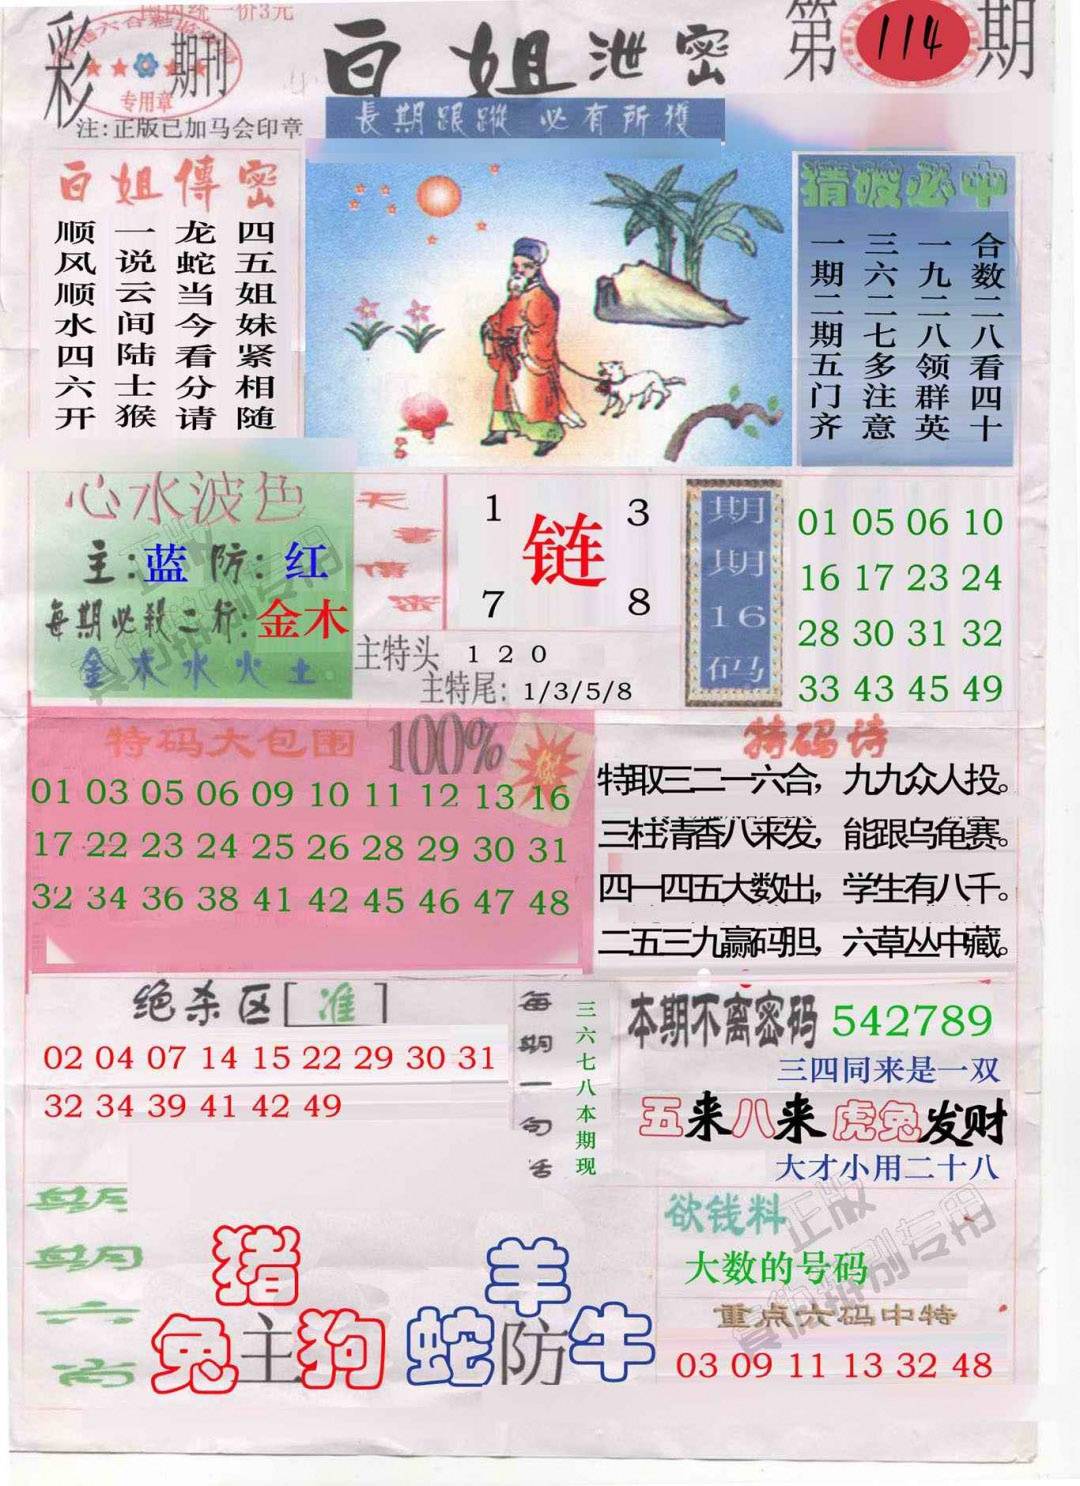 国内统一价3元
彩
期刊
专用章
注:正版已加马会印章
白姐泄密
第114期
長期跟蹤 必有所獲
白姐傳密
四五姐妹紧相随
龙蛇当今看分请
一说云间陆士猴
顺风顺水四六开
猜破必中
合数二八看四十
一九二八领群英
三六二七多注意
一期二期五门齐
心水波色
主:蓝 防:红
每期必殺二行:金木
金木水火土
天書傳密
1 3
链
7 8
主特头 1 2 0
主特尾: 1/3/5/8
期期16码
01 05 06 10
16 17 23 24
28 30 31 32
33 43 45 49
特码大包围 100%
01 03 05 06 09 10 11 12 13 16
17 22 23 24 25 26 28 29 30 31
32 34 36 38 41 42 45 46 47 48
特码诗
特取三二一六合，九九众人投。
三柱清香八来发，能跟乌龟赛。
四一四五大数出，学生有八千。
二五三九赢码胆，六草丛中藏。
绝杀区[准]
02 04 07 14 15 22 29 30 31
32 34 39 41 42 49
每期一句话
三六七八本期现
本期不离密码 542789
三四同来是一双
五来八来 虎兔发财
大才小用二十八
猪
兔主狗
羊
蛇防牛
欲钱料
大数的号码
重点六码中特
03 09 11 13 32 48